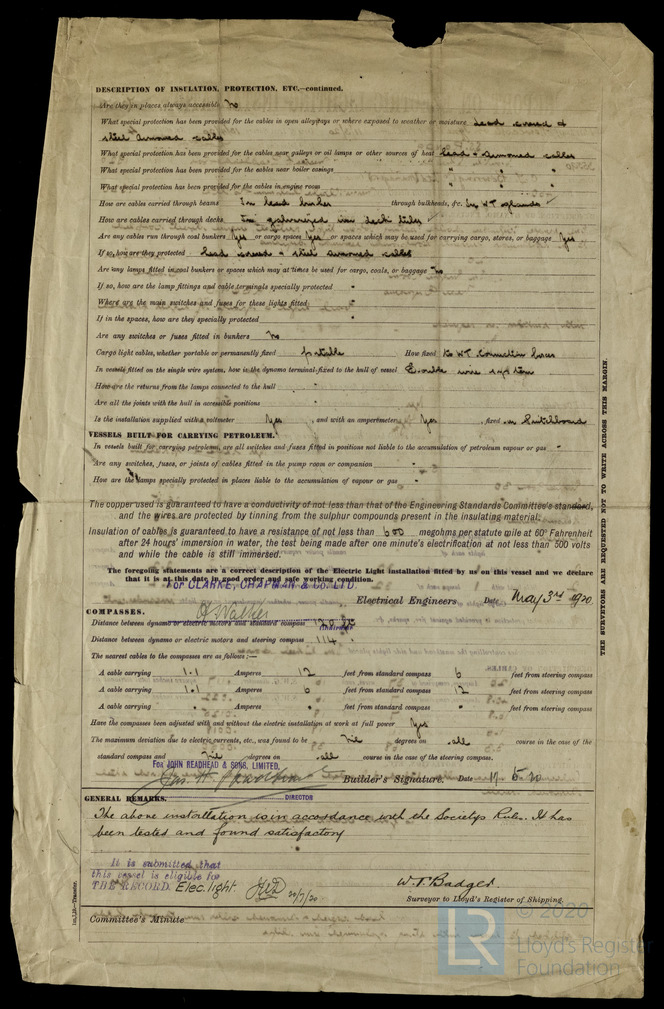 DESCRIPTION OF INSULATION, PROTECTION, ETC.—continued.
Are they in places always accessible No
What special protection has been provided for the cables in open alleyways or where exposed to weather or moisture Lead covered &
steel armoured cables
What special protection has been provided for the cables near galleys or oil lamps or other sources of heat Lead & armoured cables
What special protection has been provided for the cables near boiler casings " " "
What special protection has been provided for the cables in engine room " " "
How are cables carried through beams In lead bushes through bulkheads, &c. by WT glands
How are cables carried through decks In galvanized iron deck tubes
Are any cables run through coal bunkers Yes or cargo spaces Yes or spaces which may be used for carrying cargo, stores, or baggage Yes
If so, how are they protected Lead covered & steel armoured cables
Are any lamps fitted in coal bunkers or spaces which may at times be used for cargo, coals, or baggage No
If so, how are the lamp fittings and cable terminals specially protected "
Where are the main switches and fuses for these lights fitted "
If in the spaces, how are they specially protected "
Are any switches or fuses fitted in bunkers No
Cargo light cables, whether portable or permanently fixed Portable How fixed to WT Connection boxes
In vessels fitted on the single wire system, how is the dynamo terminal fixed to the hull of vessel Double wire system
How are the returns from the lamps connected to the hull "
Are all the joints with the hull in accessible positions "
Is the installation supplied with a voltmeter Yes, and with an amperemeter Yes, fixed on Switchboard
VESSELS BUILT FOR CARRYING PETROLEUM.
In vessels built for carrying petroleum, are all switches and fuses fitted in positions not liable to the accumulation of petroleum vapour or gas "
Are any switches, fuses, or joints of cables fitted in the pump room or companion "
How are the lamps specially protected in places liable to the accumulation of vapour or gas "
The copper used is guaranteed to have a conductivity of not less than that of the Engineering Standards Committee's standard,
and the wires are protected by tinning from the sulphur compounds present in the insulating material.
Insulation of cables is guaranteed to have a resistance of not less than 600 megohms per statute mile at 60° Fahrenheit
after 24 hours' immersion in water, the test being made after one minute's electrification at not less than 500 volts
and while the cable is still immersed.
The foregoing statements are a correct description of the Electric Light installation fitted by us on this vessel and we declare
that it is at this date in good order and safe working condition.
For CLARKE, CHAPMAN & Co. LTD.
H Walker Electrical Engineers Date May 3rd 1920
COMPASSES.
Distance between dynamo or electric motors and standard compass
Distance between dynamo or electric motors and steering compass 114
The nearest cables to the compasses are as follows:—
A cable carrying 1.1 Amperes 12 feet from standard compass 6 feet from steering compass
A cable carrying 1.1 Amperes 6 feet from standard compass 12 feet from steering compass
A cable carrying " Amperes " feet from standard compass " feet from steering compass
Have the compasses been adjusted with and without the electric installation at work at full power Yes
The maximum deviation due to electric currents, etc., was found to be Nil degrees on all course in the case of the
standard compass and Nil degrees on all course in the case of the steering compass.
FOR JOHN READHEAD & SONS, LIMITED.
Builder's Signature. Date 17.5.20
DIRECTOR
GENERAL REMARKS.
The above installation is in accordance with the Societys Rules. It has
been tested and found satisfactory
It is submitted that
this vessel is eligible for
THE RECORD. Elec. light JWD 20/7/20
W.T. Badger
Surveyor to Lloyd's Register of Shipping.
Committee's Minute
THE SURVEYORS ARE REQUESTED NOT TO WRITE ACROSS THIS MARGIN.
© 2020
LR
Lloyd's Register
Foundation